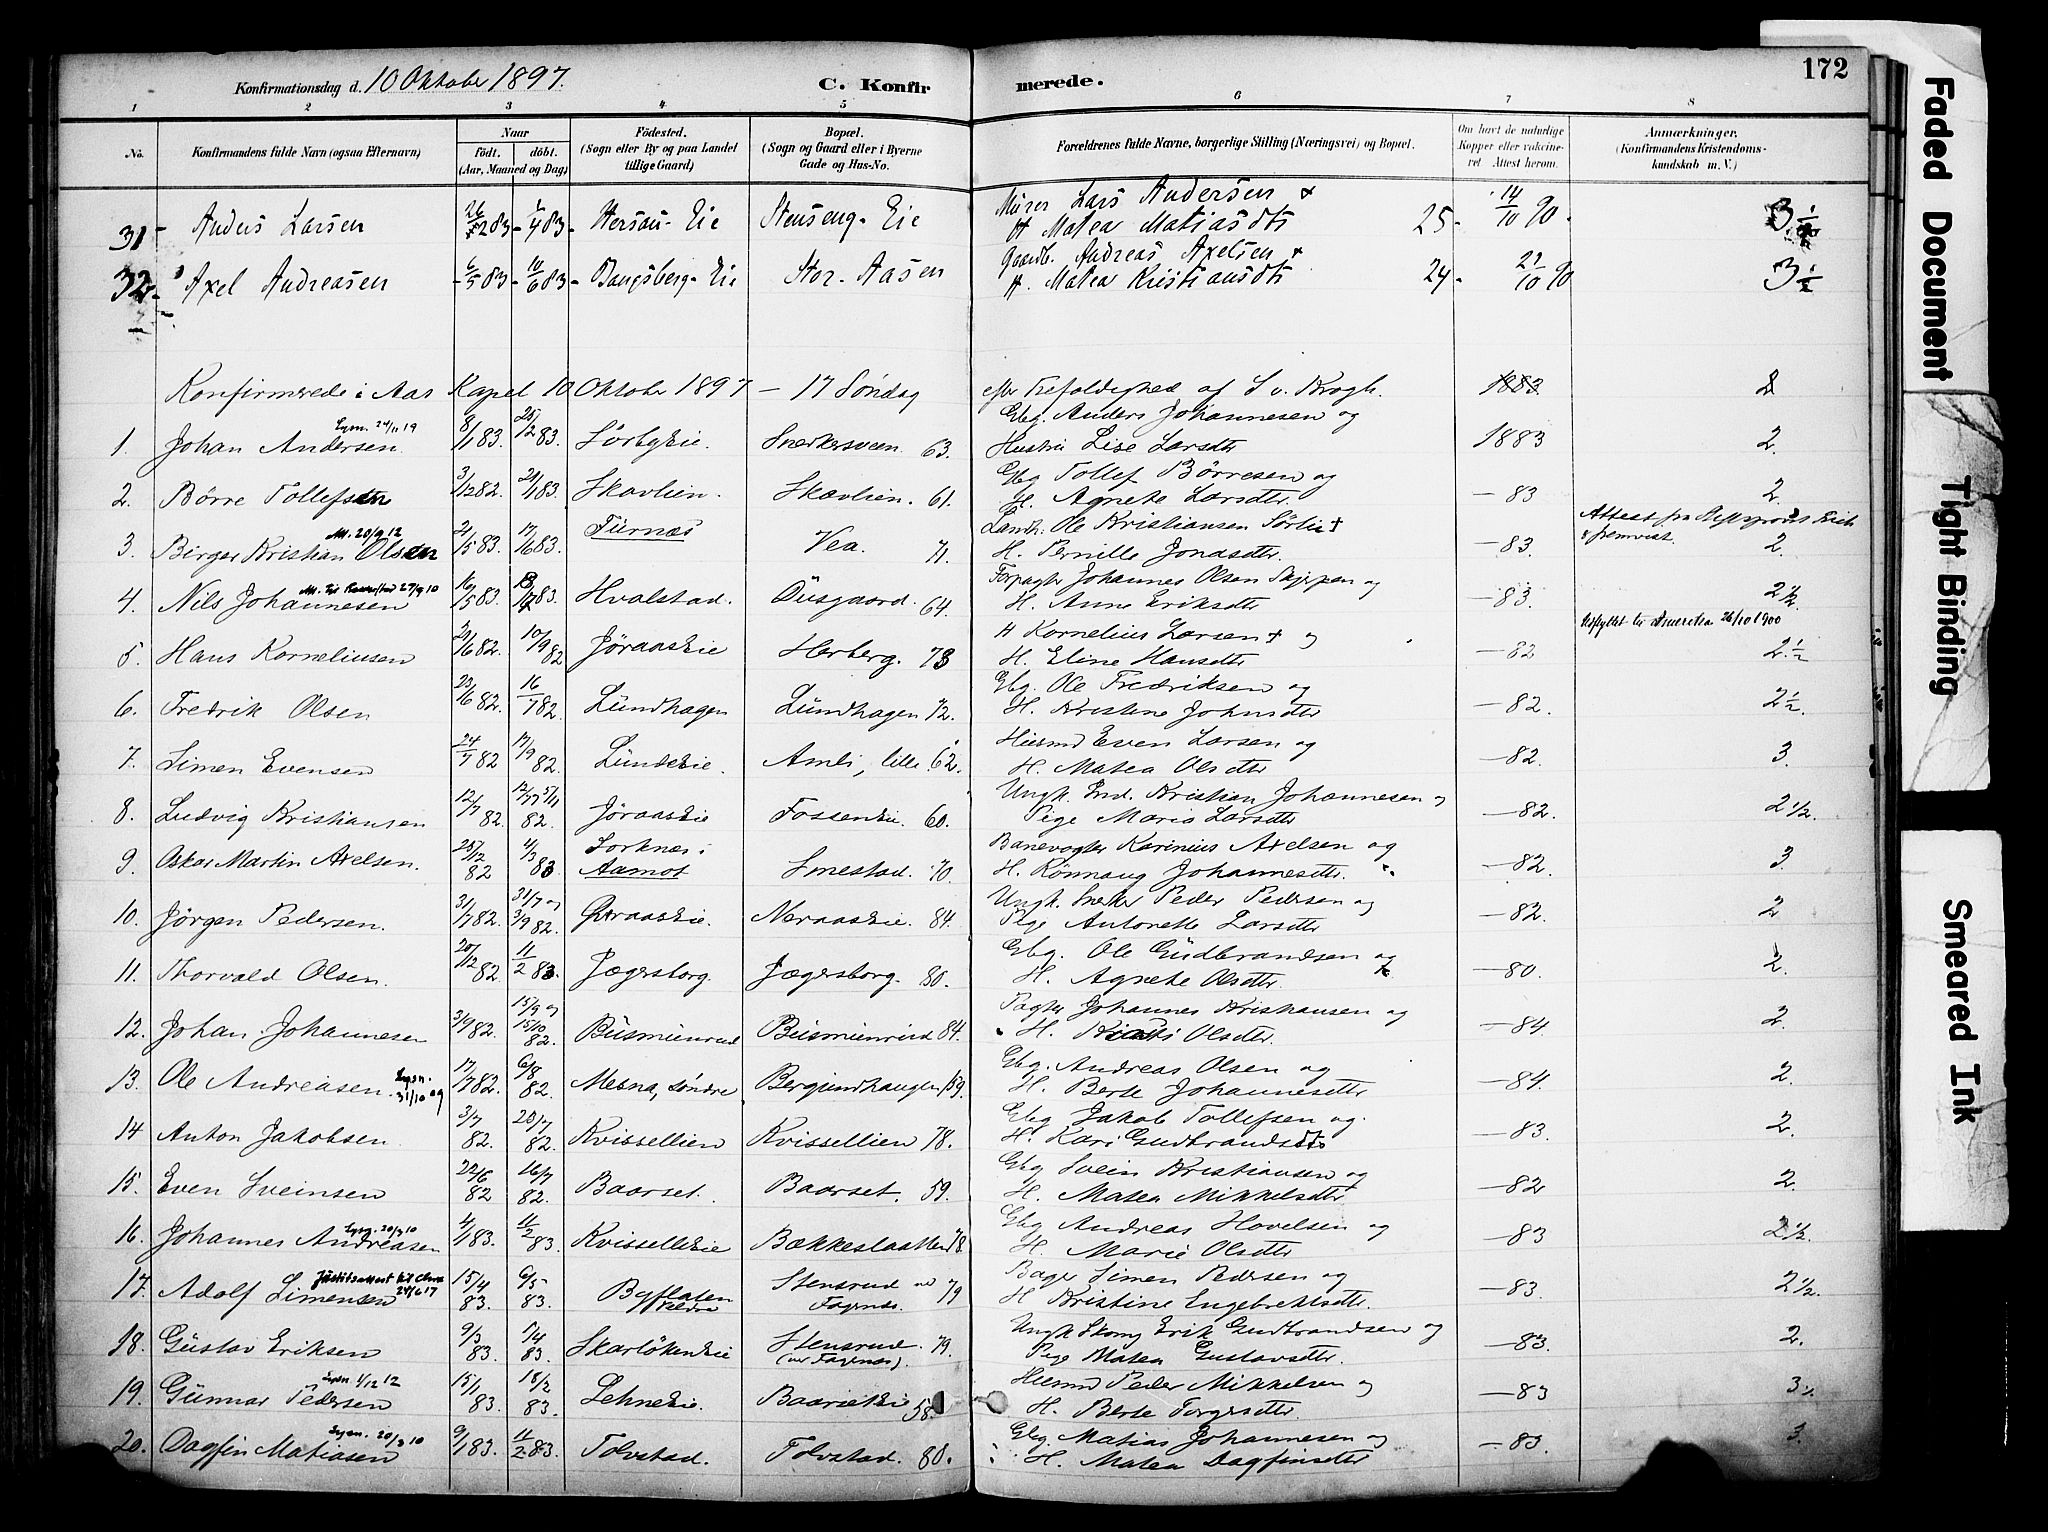 Konfirmationsdag d. 10 Oktober 1897.
C. Konfirmerede.
172
1 2 3 4 5 6 7 8
No.
Konfirmandens fulde Navn (ogsaa Efternavn)
Naar
født. døbt.
(Aar, Maaned og Dag)
Fødested.
(Sogn eller By og paa Landet
tillige Gaard)
Bopæl.
(Sogn og Gaard eller i Byerne
Gade og Hus-No.
Forældrenes fulde Navne, borgerlige Stilling (Næringsvei) og Bopæl.
Om havt de naturlige
Kopper eller vakcine-
ret. Attest herom.
Anmærkninger.
(Konfirmandens Kristendoms-
kundskab m. V.)
31 Anders Larsen Stenseng-Eie Murer Lars Andersen &
H Matea Matiasdtr 25 14/10 90 3 1/2
32 Axel Andreasen 6/5 83 10/6 83 Bangsberg-Eie Stor-Aasen Gaardb. Andreas Axelsen &
H. Matea Kristiansdtr 24 29/10 90 3 1/2
Konfirmerede i Aas Kapel 10 Oktober 1897 — 17 Søndag efter Trefoldighed af S. v. Krogh.
1. Johan Andersen. Lysn. 24/11 19 8/1 83. 25/2 83. Sørbyeie Snerkersveen 63. Gbg. Anders Johannesen og
Hustru Lise Larsdtr 1883 2.
2. Børre Tollefsen 3/12 82. 21/1 83. Skavlien. Skavlien. 61. Gbg Tollef Børresen og
H. Agnete Larsdtr — 83 2.
3. Birger Kristian Olsen Att. 20/9 12 21/5 83. 17/6 83. Furnæs Vea. 71. Landh. Ole Kristiansen Sørlie +
H. Pernille Jonasdtr. — 83. Attest fra
fremvist. 2.
4. Nils Johannesen 27/9 10 16/5 83. Hvalstad. Øusgaard. 64. Forpagter Johannes Olsen Skjeppen og
H. Anne Eriksdtr — 83. 2 1/2.
5. Hans Korneliusen 21/6 82. 10/9 82 Jøraaseie Herberg. 73 Kornelius Larsen + og
H. Eline Hansdtr — 82 Udflyttet til Amerika 26/10 1900 2 1/2
6. Fredrik Olsen 23/6 82. 16/7 82. Lundhagen Lundhagen 72. Gbg. Ole Fredriksen og
H. Kristine Johnsdtr — 82. 2 1/2.
7. Simen Evensen 24/7 82 17/9 82. Lundeeie. Amli, lille. 62. Huusmd Even Larsen og
H. Matea Olsdtr — 82. 3.
8. Ludvig Kristiansen 12/7 82. 82. Jøraaseie Fosseneie. 60. Ungk. Ind. Kristian Johannesen og
Pige Maria Larsdtr — 82. 2 1/2.
9. Oskar Martin Axelsen. 28/12 82 4/3 83 Sorknæs i
Aamot Smestad. 70. Banevogter Karinius Axelsen og
H. Rønnaug Johannesdtr. — 82. 3.
10. Jørgen Pedersen. 31/7 82. 31/7 og
3/9 82. Øraaseie. Neraaseie. 84. Ungk. Sneker Peder Pedersen og
Pige Antonette Larsdtr — 82. 2
11. Thorvald Olsen. 20/12 82. 11/2 83. Jægersborg. Jægersborg. 80. Gbg. Ole Gudbrandsen og
H. Agnete Olsdtr. — 80. 2.
12. Johan Johannesen 3/9 82. 15/9 og
15/10 82. Busmienrud Busmienrud 84. Pagter Johannes Kristiansen og
H. Olsdtr. — 84. 2.
13. Ole Andreasen. Lysn. 31/10 09 17/7 82. 6/8 82. Mesna, søndre Berglundhaugen 59. Gbg. Andreas Olsen og
H. Berte Johannesdtr — 84. 2.
14 Anton Jakobsen. 3/7 82. 82. Kvissellien Kvissellien 78. Gbg Jakob Tollefsen og
H. Kari Gudbrandsdtr — 83. 2.
15. Even Sveinsen 22/6 82 16/7 82. Baarset. Baarset. 59. Gbg Svein Kristiansen og
H. Matea Mikkelsdtr — 82 2.
16. Johannes Andreasen Lysn. 20/3 10 4/1 83. 11/2 83. Kvisselleie Bækkeslaatten 78. Gbg Andreas Hovelsen og
H. Marie Olsdtr — 83 2 1/2.
17. Adolf Simensen 24/6 17 15/4 83. 6/5 83. Byflaten
nedre Stensrud
Fagernæs. 79 Bager Simen Pedersen og
H Kristine Engebretsdtr. — 83. 2 1/2.
18. Gustav Eriksen 9/3 83. 1/4 83. Skarløkeneie Stensrud
(nu Fagernæs). 79. Ungk Skom. Erik Gudbrandsen og
Pige Matea Gustavsdtr. — 83. 2.
19. Gunnar Pedersen Lysn. 1/12 12 15/1 83. 18/2 83. Lehneeie. Baarseteie 58. Huusmd Peder Mikkelsen og
H. Berte Torgersdtr. — 83
20. Dagfin Matiasen Lysn. 20/3 10 9/1 83. 11/2 83. Tolvstad. Tolvstad. 80. Gbg. Matias Johannesen og
H. Matea Dagfinsdtr — 83. 3.
Faded Document
Tight Binding
Smeared Ink